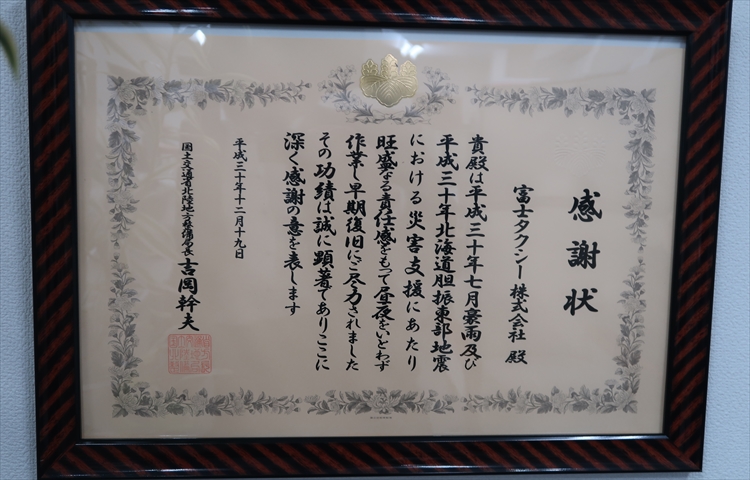 感謝状
富士タクシー株式会社 殿
貴殿は平成三十年七月豪雨及び
平成三十年北海道胆振東部地震
における災害支援にあたり
旺盛なる責任感をもって昼夜をいとわず
作業し早期復旧にご尽力されました
その功績は誠に顕著でありここに
深く感謝の意を表します
平成三十年十二月十九日
国土交通省北陸地方整備局長 吉岡幹夫